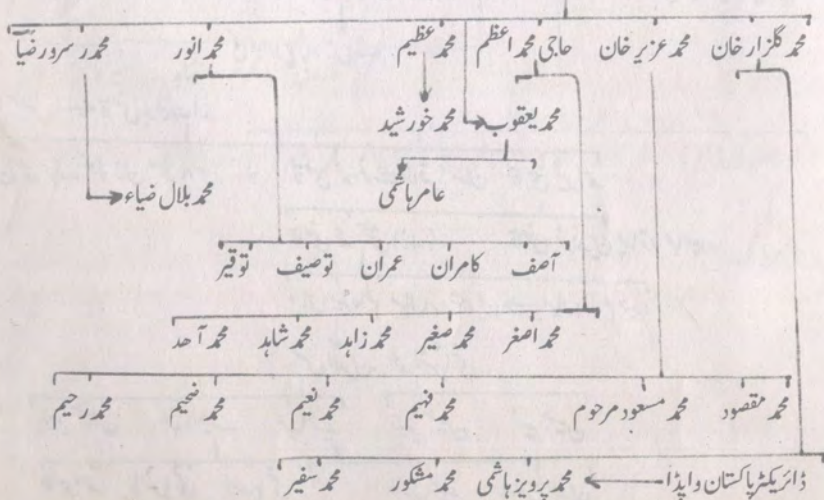 محمد گلزار خان محمد عزیر خان حاجی محمد اعظم محمد عظیم محمد انور محمد سرور ضیاء
محمد یعقوب محمد خورشید
عامر ہاشمی
محمد بلال ضیاء
آصف کامران عمران توصیف توقیر
محمد اصغر محمد صغیر محمد زاہد محمد شاہد محمد آحد
محمد مقصود محمد مسعود مرحوم محمد فہیم محمد نعیم محمد ضحیم محمد رحیم
ڈائریکٹر پاکستان واپڈا محمد پرویز ہاشمی محمد مشکور محمد سفیر